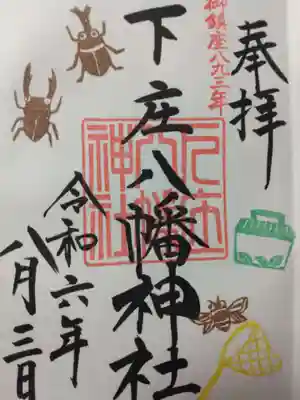 奉拝
御鎮座八九三年
下庄八幡神社
下庄八幡神社
令和六年
八月三日